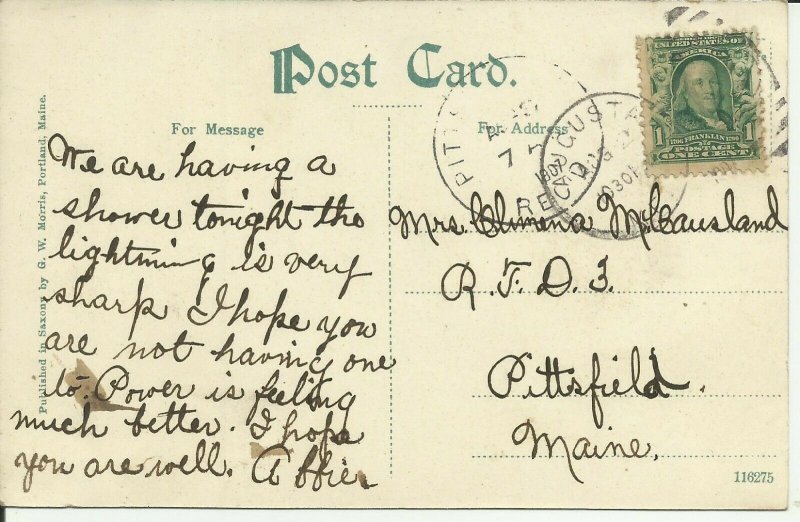 Post Card.
For Message
For Address
Published in Saxony by G. W. Morris, Portland, Maine.
We are having a
shower tonight the
lightning is very
sharp I hope you
are not having one
to. Power is feeling
much better. I hope
you are well. Abbie
UNITED STATES OF
AMERICA
1 1
1706 FRANKLIN 1790
POSTAGE
ONE CENT
AUGUSTA
1907
REC'D.
Mrs. Climena McCausland
R. F. D. 3.
Pittsfield.
Maine.
116275